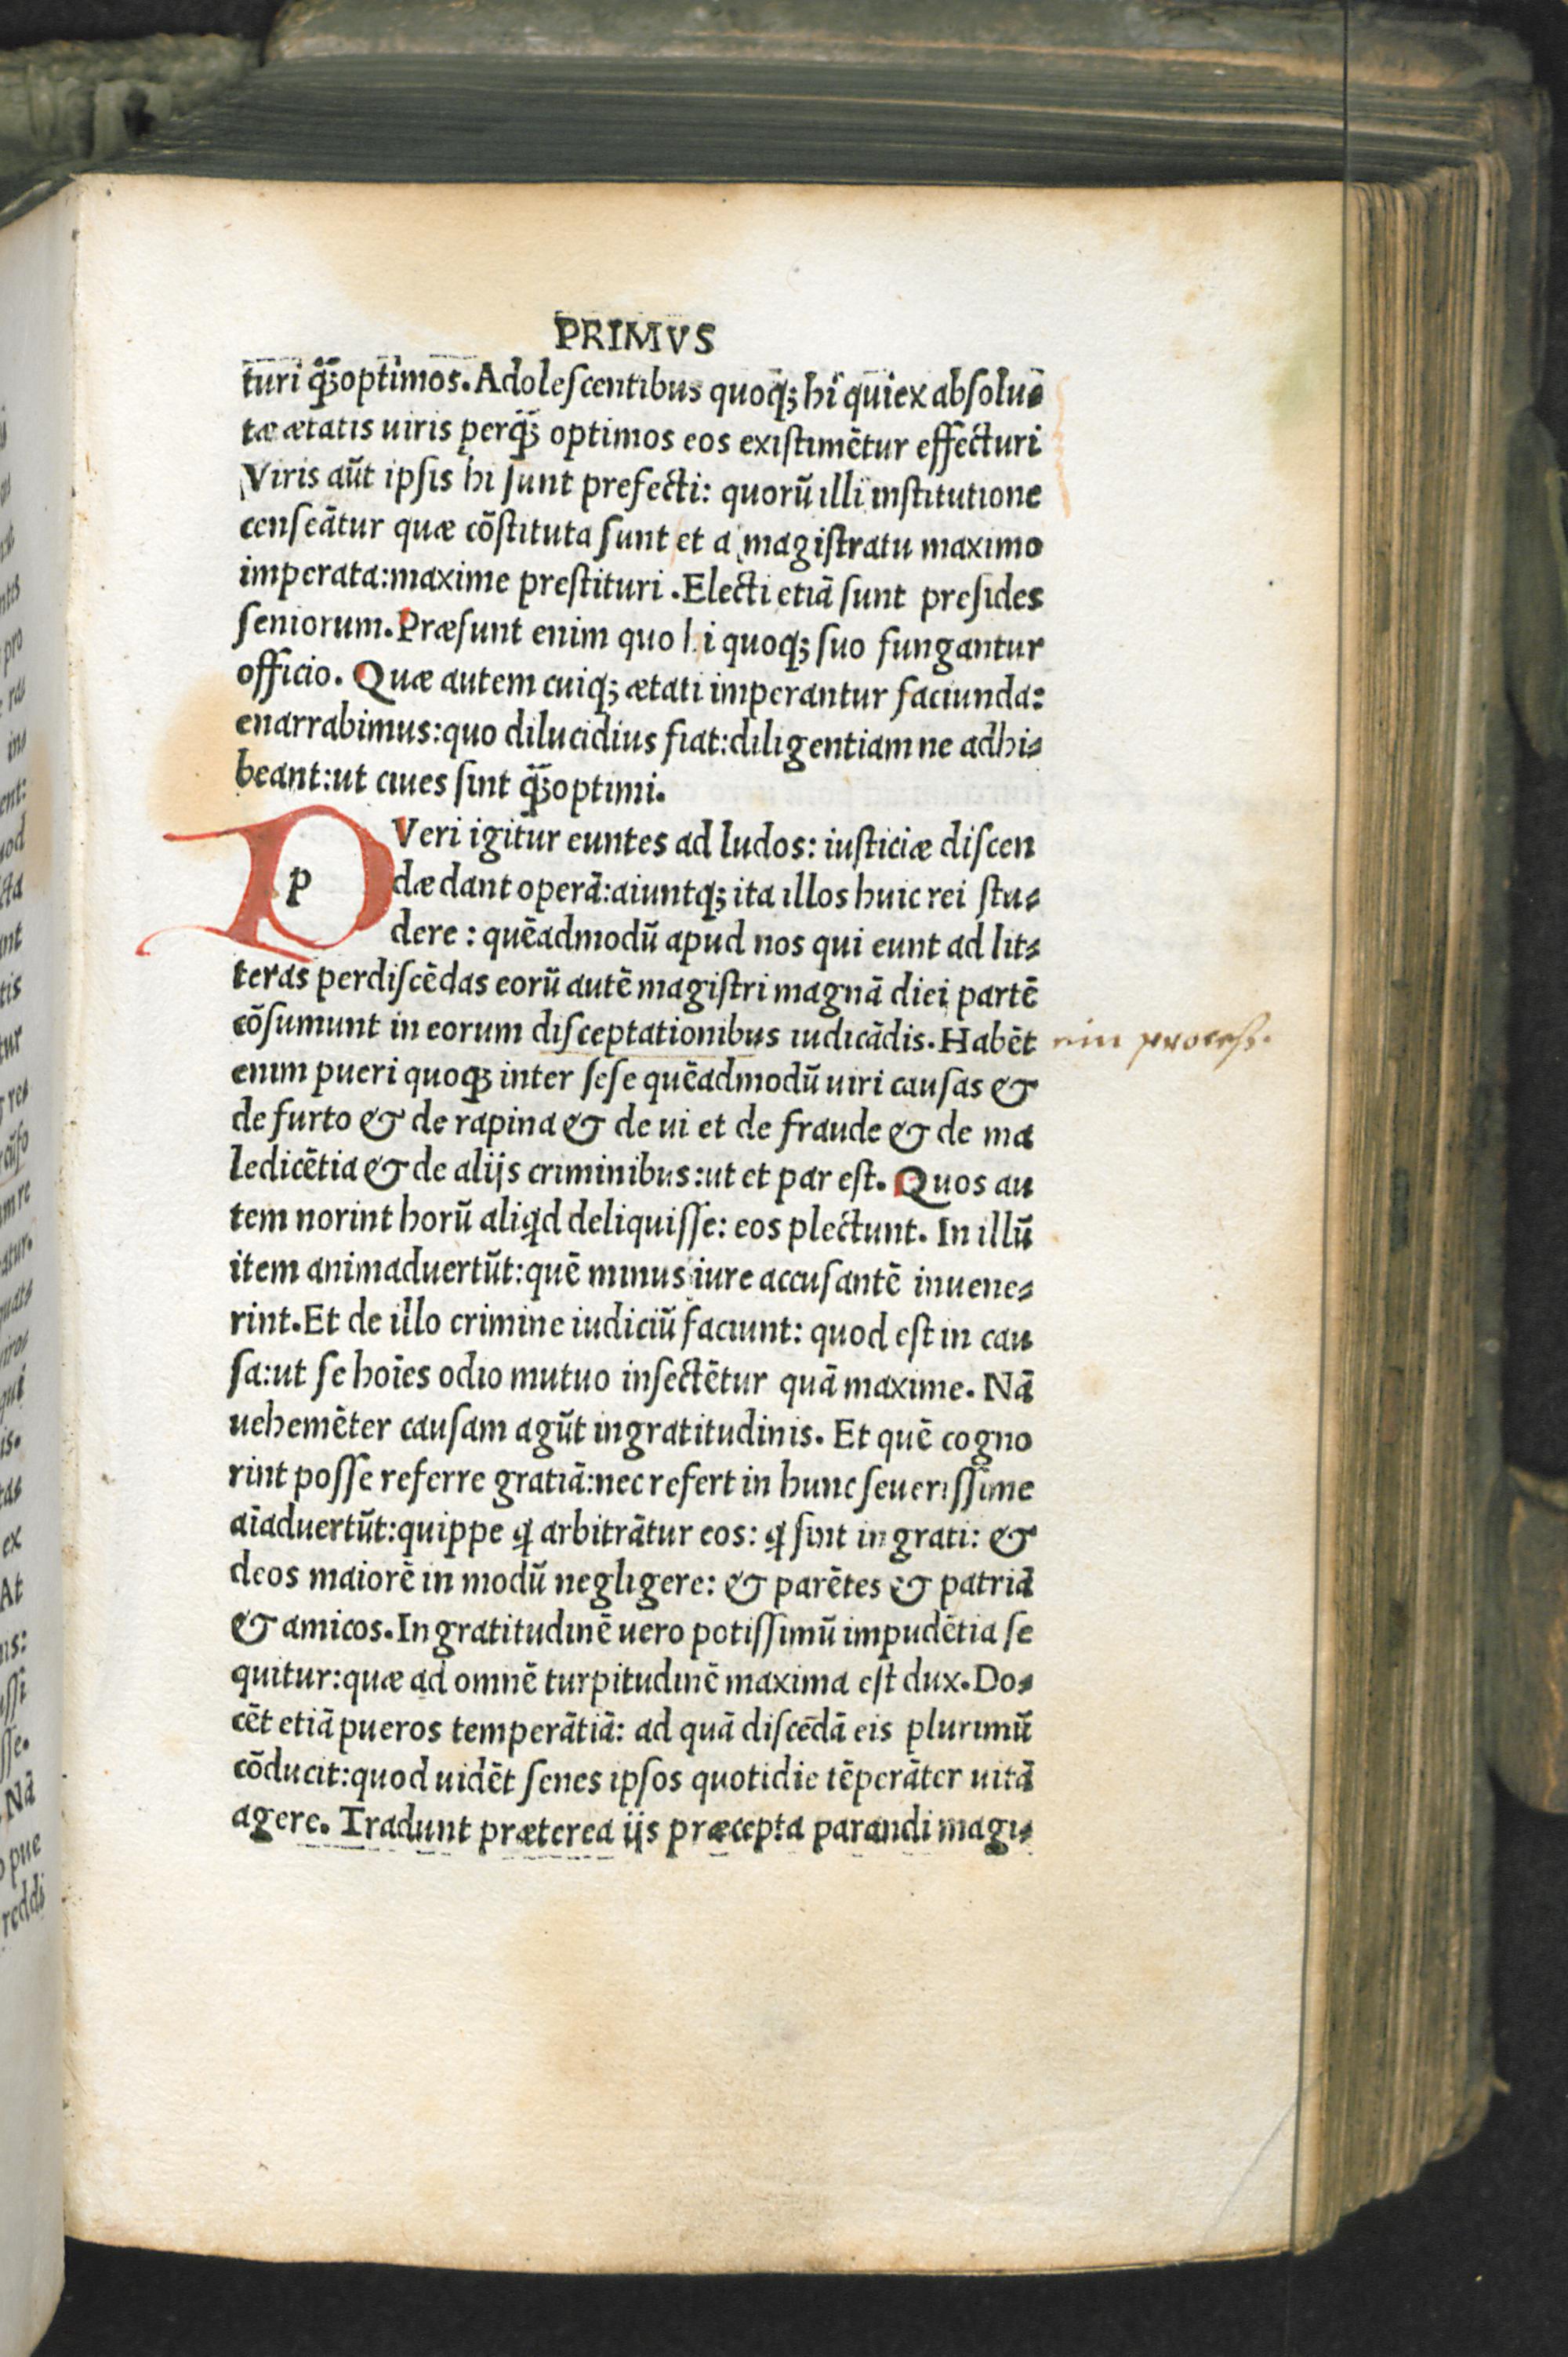 PRIMVS
turi q̃ꝫ optimos. Adoleſcentibus quoqꝫ hi qui ex abſolu⸗
tæ ætatis uiris perq̃ꝫ optimos eos exiſtimẽtur effecturi
Viris aũt ipſis hi ſunt prefecti: quorũ illi inſtitutione
cenſeãtur quæ cõſtituta ſunt et a magiſtratu maximo
imperata: maxime preſtituri. Electi etiã ſunt preſides
ſeniorum. Præſunt enim quo hi quoqꝫ ſuo fungantur
officio. Quæ autem cuiqꝫ ætati imperantur faciunda:
enarrabimus: quo dilucidius fiat: diligentiam ne adhi⸗
beant: ut ciues ſint q̃ꝫ optimi.
p Veri igitur euntes ad ludos: iuſticiæ diſcen
dæ dant operã: aiuntqꝫ ita illos huic rei ſtu⸗
dere: quẽadmodũ apud nos qui eunt ad lit⸗
teras perdiſcẽdas eorũ autẽ magiſtri magnã diei partẽ
cõſumunt in eorum diſceptationibus iudicãdis. Habẽt
enim pueri quoqꝫ inter ſeſe quẽadmodũ uiri cauſas &
de furto & de rapina & de ui et de fraude & de ma
ledicẽtia & de alijs criminibus: ut et par eſt. Quos au
tem norint horũ aliꝗd deliquiſſe: eos plectunt. In illũ
item animaduertũt: quẽ minus iure accuſantẽ inuene⸗
rint. Et de illo crimine iudiciũ faciunt: quod eſt in cau
ſa: ut ſe hoĩes odio mutuo inſectẽtur quã maxime. Nã
uehemẽter cauſam agũt ingratitudinis. Et quẽ cogno
rint poſſe referre gratiã: nec refert in hunc ſeueriſſime
aĩaduertũt: quippe ꝗ arbitrãtur eos: ꝗ ſint ingrati: &
deos maiorẽ in modũ negligere: & parẽtes & patriã
& amicos. Ingratitudinẽ uero potiſſimũ impudẽtia ſe
quitur: quæ ad omnẽ turpitudinẽ maxima eſt dux. Do⸗
cẽt etiã pueros temperãtiã: ad quã diſcẽdã eis plurimũ
cõducit: quod uidẽt ſenes ipſos quotidie tẽperãter uitã
agere. Tradunt præterea ijs præcepta parandi magi⸗